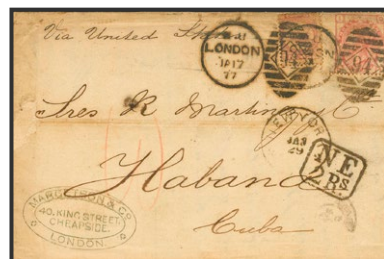 Via United States
LONDON
JA 17
77
94
94
Sres R. Martinez y Co
NEW YORK
JAN
29
NE
2 Rs.
Habana
Cuba
MARGETSON & Co.
40. KING STREET.
CHEAPSIDE.
LONDON.